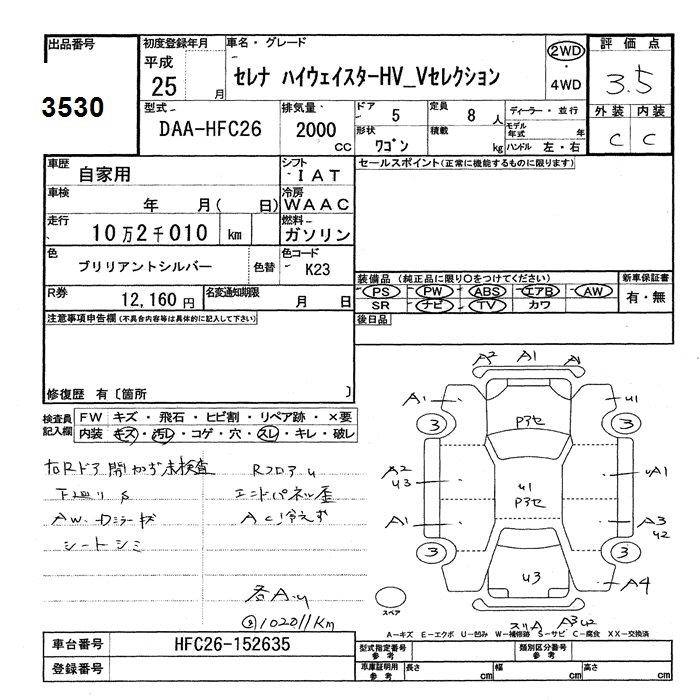 出品番号
3530
初度登録年月
平成
25 月
車名・グレード
セレナ ハイウェイスターHV_Vセレクション
2WD
・
4WD
評価点
3.5
外装 内装
C C
型式
DAA-HFC26
排気量
2000
CC
ドア 5
定員 8 人
形状
ワゴン
積載
kg
ディーラー・並行
モデル年式 年
ハンドル 左・右
車歴
自家用
シフト
IAT
車検
年 月( 日)
冷房
WAAC
走行
10万2千010 km
燃料
ガソリン
色
ブリリアントシルバー
色替
色コード
K23
R券
12,160円
名変通知期限
月 日
セールスポイント(正常に機能するものに限ります)
装備品 (純正品に限り○をつけてください)
PS PW ABS エアB AW
SR ナビ TV カワ
新車保証書
有・無
後日品
注意事項申告欄(不具合内容等は具体的に記入して下さい)
修復歴 有〔箇所 〕
検査員記入欄
FW キズ・飛石・ヒビ割・リペア跡・×要
内装 キズ・汚レ・コゲ・穴・スレ・キレ・破レ
右Rドア開かず未検査
下廻りS
AW・Dミラーキズ
シートシミ
RフロアU
エンドパネル歪
AC冷えず
各A.u
102011Km
A2 A1 A
A1 U1
3 3
Pアセ
A2
U3
UA1
U1
Pアセ
A1
A3
U2
3 3
U3
A4
スリA A3 U2
スペア
A-キズ E-エクボ U-凹み W-補修跡 S-サビ C-腐食 XX-交換済
車台番号
HFC26-152635
登録番号
型式指定番号
参考
類別区分番号
参考
車庫証明用
参考
長さ cm
幅 cm
高さ cm